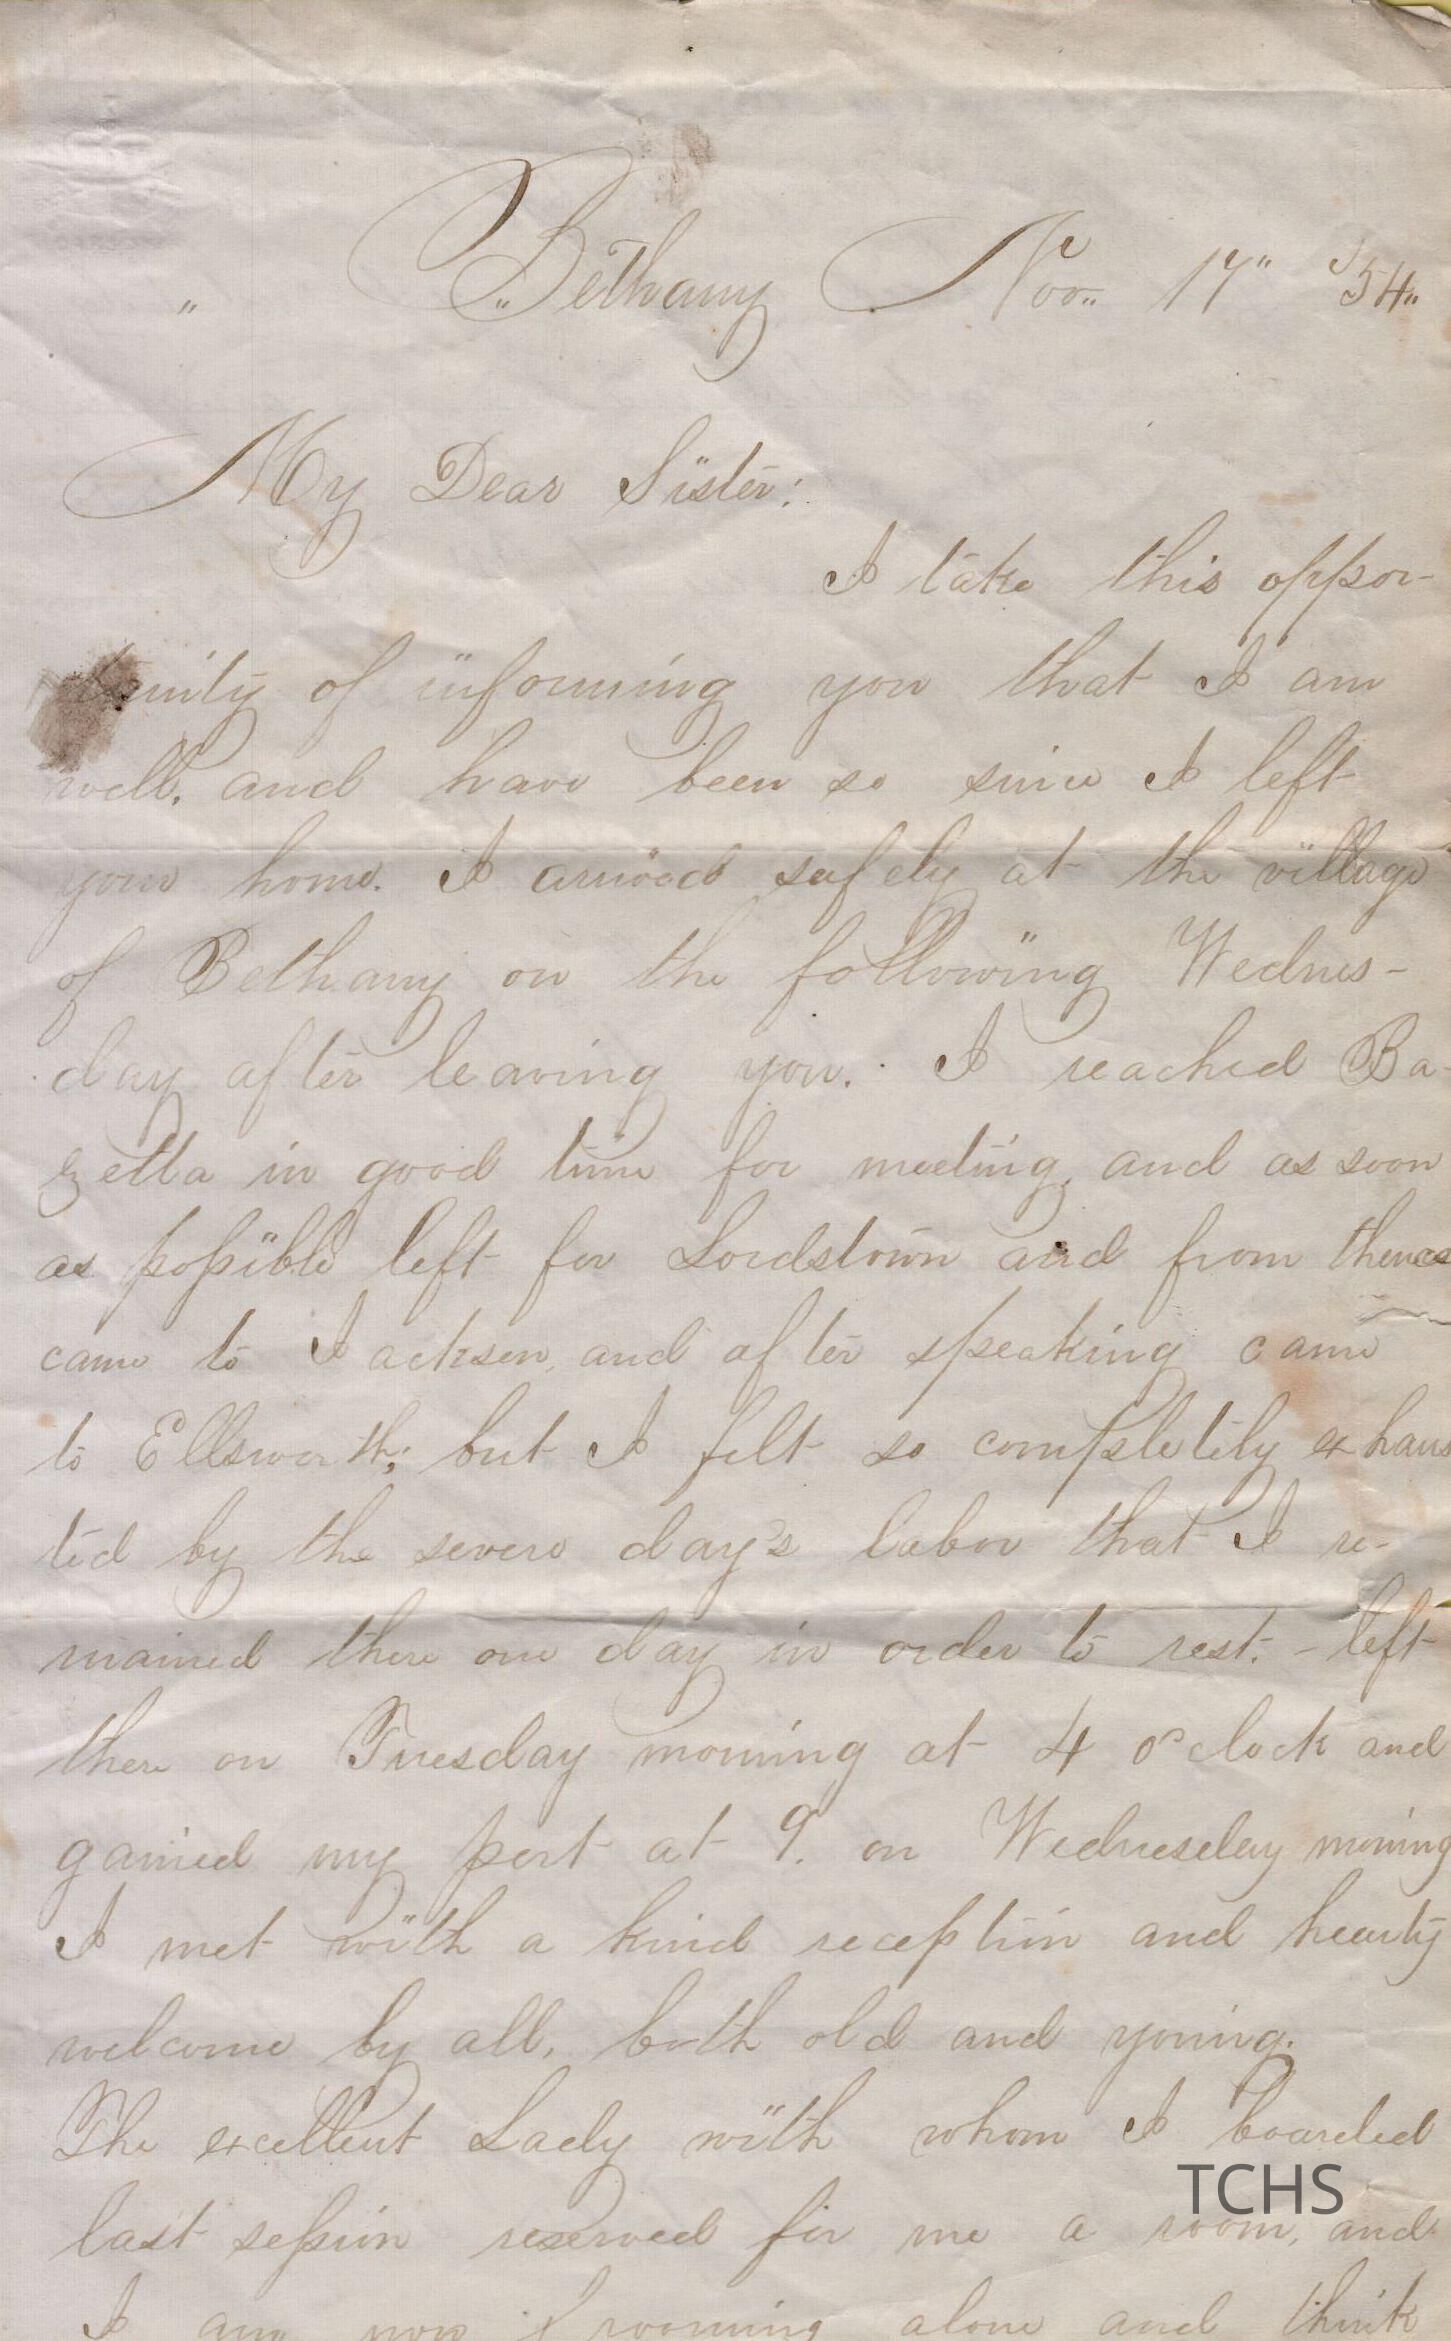 " Bethany Nov 17" '54"
My Dear Sister:
I take this oppor-
tunity of informing you that I am
well, and have been so since I left
your home. I arrived safely at the village
of Bethany on the following Wednes-
day after leaving you. I reached Ba-
zetta in good time for meeting, and as soon
as possible left for Lordstown and from thence
came to Jackson, and after speaking came
to Ellsworth; but I felt so completily exhaus
ted by the severe day's labor that I re-
mained there one day in order to rest. - left
there on Tuesday morning at 4 o'clock and
gained my port at 9. on Wednesday morning
I met with a kind reception and hearty
welcome by all, both old and young.
The excellent Lady with whom I boarded
last session reserved for me a room, and
I am now rooming alone and think
TCHS